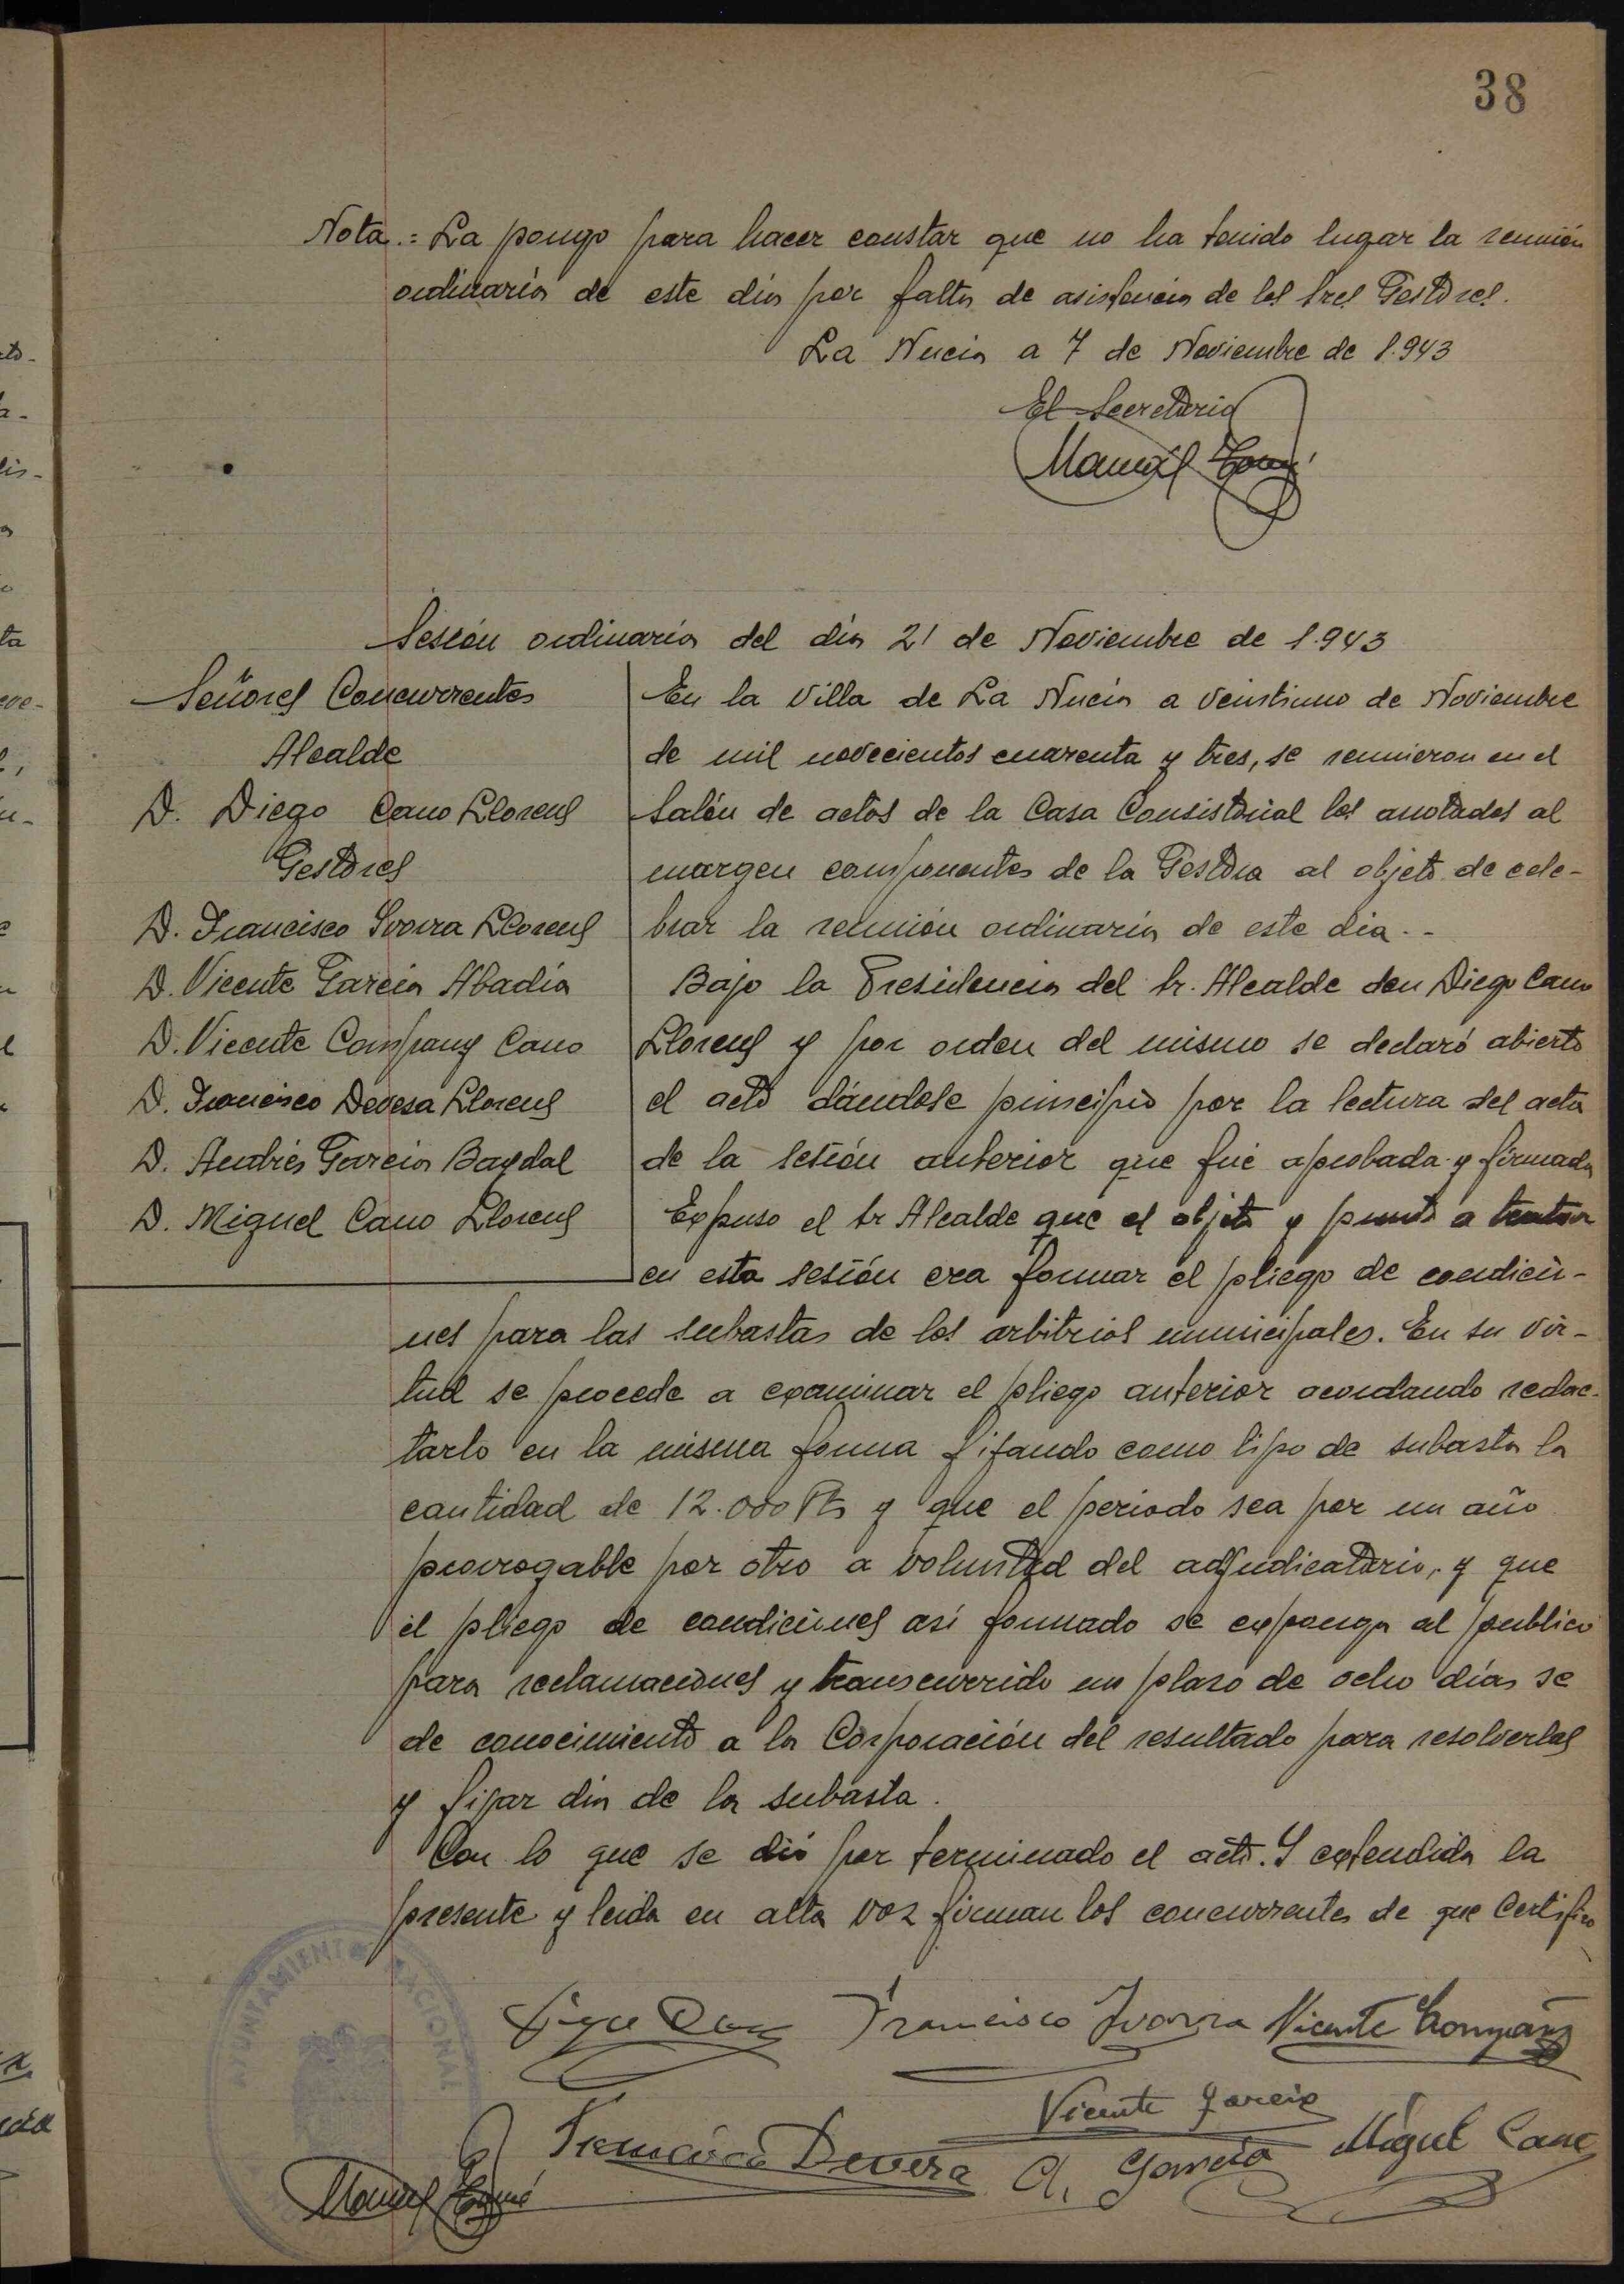 38
Nota.= La pongo para hacer constar que no ha tenido lugar la reunión
ordinaria de este día por falta de asistencia de los Sres Gestores.
La Nucia a 7 de Noviembre de 1.943
El Secretario
Manuel
Sesión ordinaria del día 21 de Noviembre de 1.943
Señores Concurrentes
Alcalde
D. Diego Cano Llorens
Gestores
D. Francisco Ivorra Llorens
D. Vicente García Abadía
D. Vicente Company Cano
D. Francisco Devesa Llorens
D. Andrés García Baydal
D. Miguel Cano Llorens
En la Villa de La Nucia a veintiuno de Noviembre
de mil novecientos cuarenta y tres, se reunieron en el
Salón de actos de la Casa Consistorial los anotados al
margen componentes de la Gestora al objeto de cele-
brar la reunión ordinaria de este dia.-
Bajo la Presidencia del Sr. Alcalde don Diego Cano
Llorens y por orden del mismo se declaró abierto
el acto dándose principio por la lectura del acta
de la sesión anterior que fué aprobada y firmada
Expuso el Sr Alcalde que el objeto y punto a tratar
en esta sesión era formar el pliego de condicio-
nes para las subastas de los arbitrios municipales. En su vir-
tud se procede a examinar el pliego anterior acordando redac-
tarlo en la misma forma fijando como tipo de subasta la
cantidad de 12.000 Pts y que el periodo sea por un año
prorrogable por otro a voluntad del adjudicatario, y que
el pliego de condiciones así formado se exponga al publico
para reclamaciones y transcurrido un plazo de ocho días se
de conocimiento a la Corporación del resultado para resolverlas
y fijar día de la subasta.
Con lo que se dió por terminado el acto. Y extendida la
presente y leida en alta voz firman los concurrentes de que Certifico
Diego Cano Francisco Ivorra Vicente Company
Vicente García
Francisco Devesa A. García Miguel Cano
Manuel
AYUNTAMIENTO NACIONAL